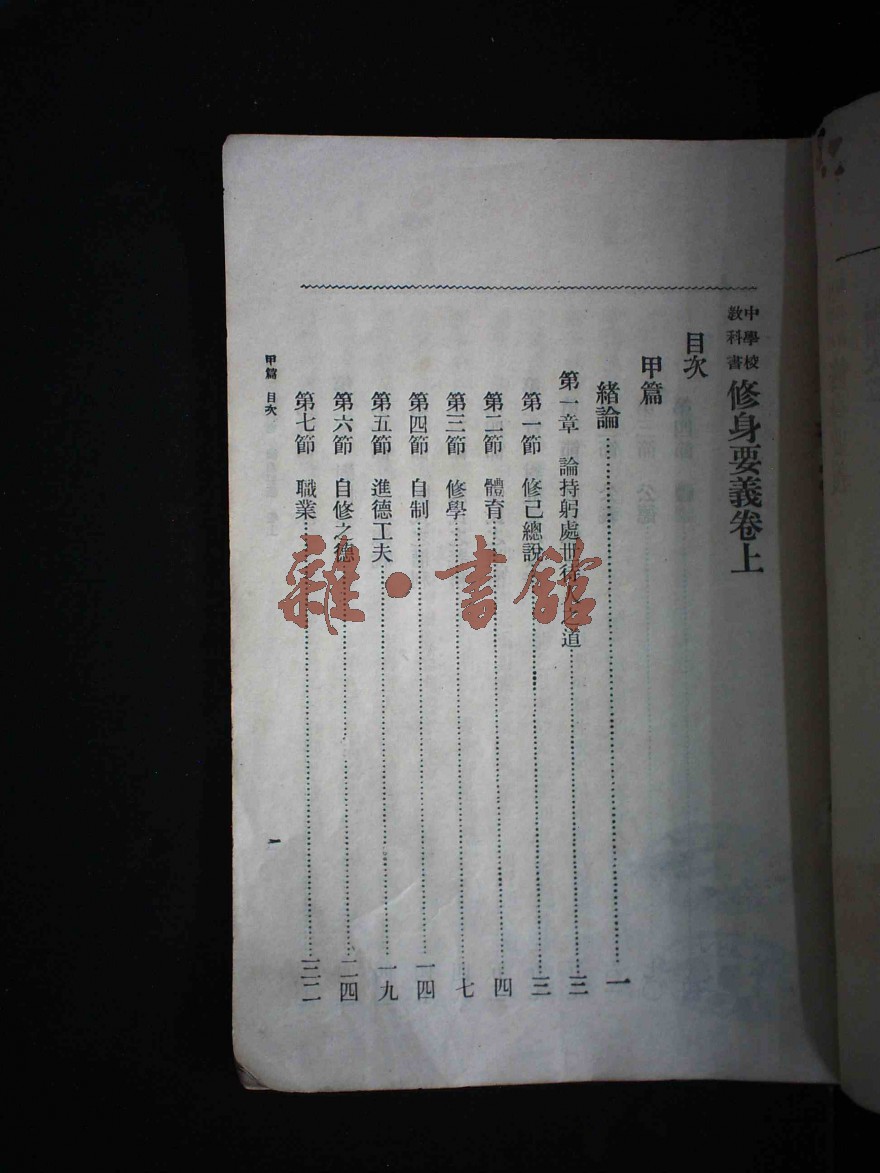 中學校
教科書
修身要義卷上
目次
甲篇
緒論……一
第一章 論持躬處世待人之道……三
第一節 修己總說……三
第二節 體育……四
第三節 修學……七
第四節 自制……一四
第五節 進德工夫……一九
第六節 自修之德……二四
第七節 職業……三二
甲篇 目次
一
雜·書館